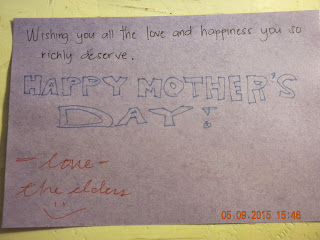 Wishing you all the love and happiness you so
richly deserve.
HAPPY MOTHER'S
DAY!
- love -
the elders
05-09-2015 15:46